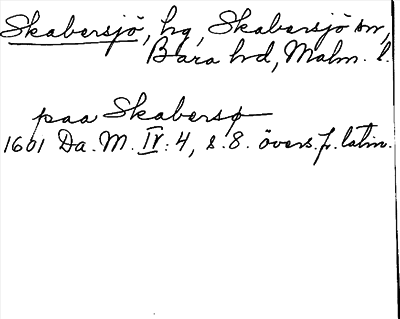 Skabersjö, hg, Skabersjö sn,
Bara hd, Malm. l.
paa Skabersø
1601 Da. M. IV: 4, s. 8. övers. fr. latin.